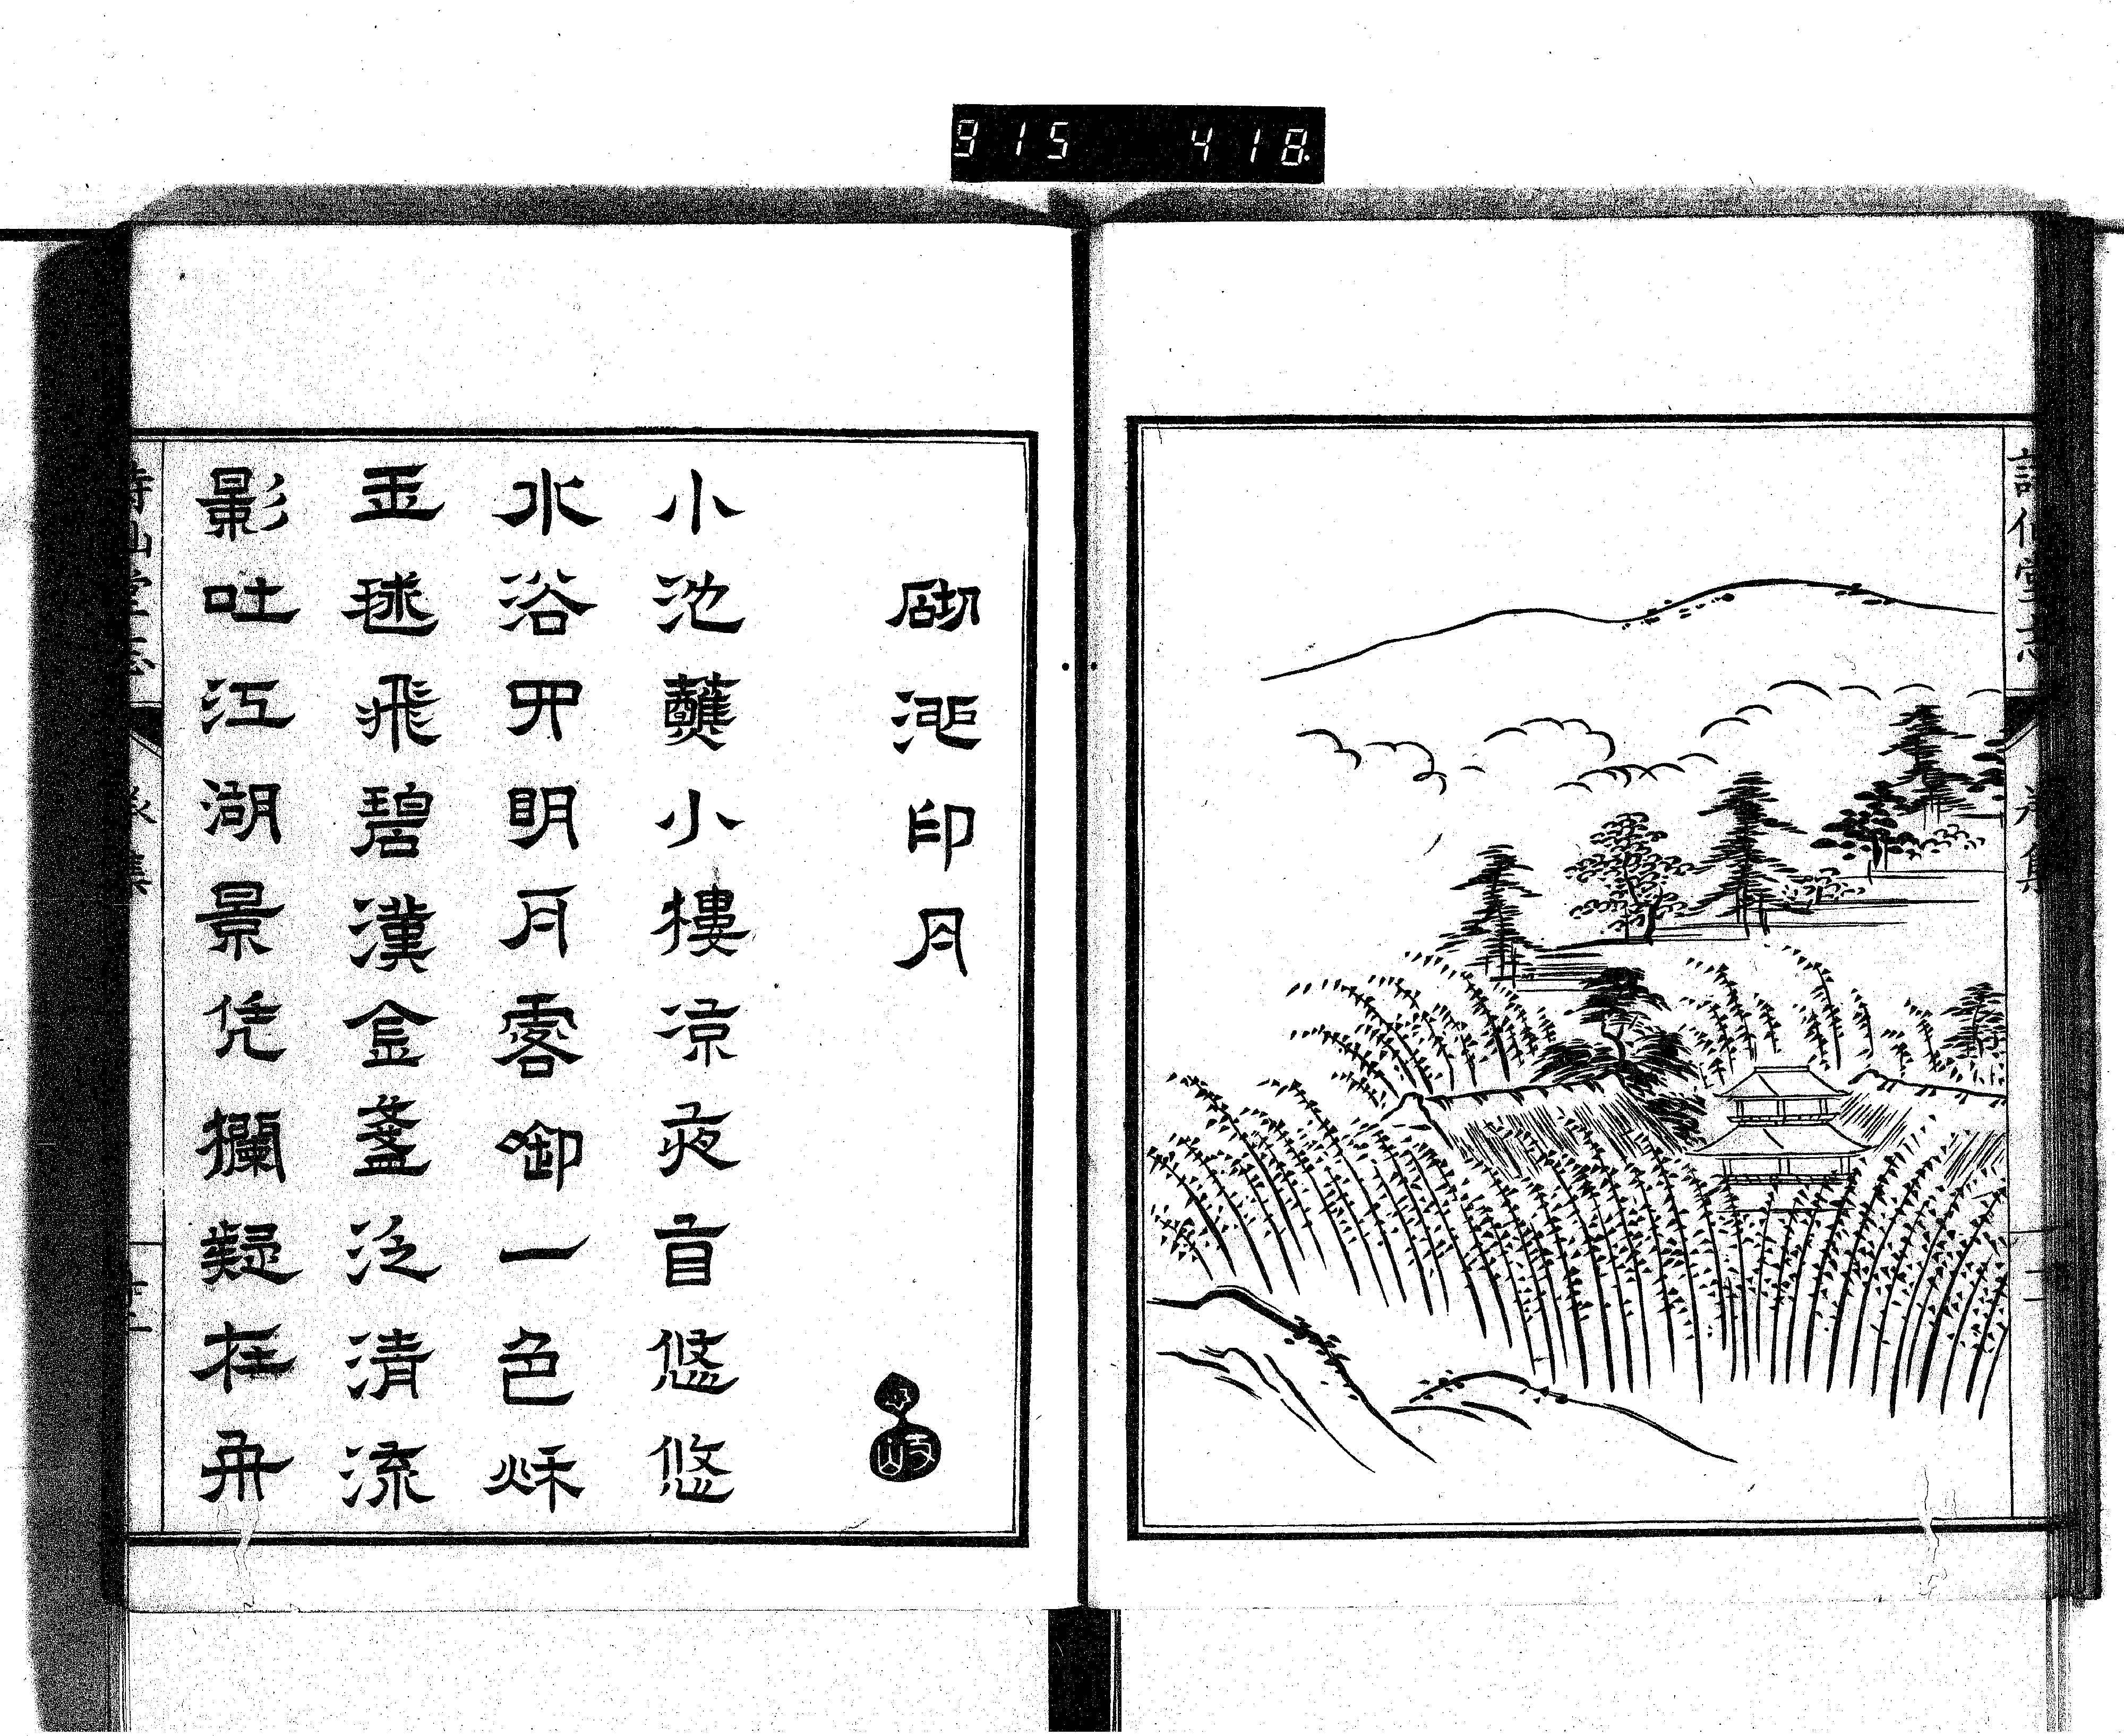 詩仙堂志
砌池印月
小池蘸小樓涼夜首悠悠
水浴四明月露一色秋
玉毬飛碧漢金盞泛清流
影吐江湖景凭欄疑在舟
詩仙堂志
915 418